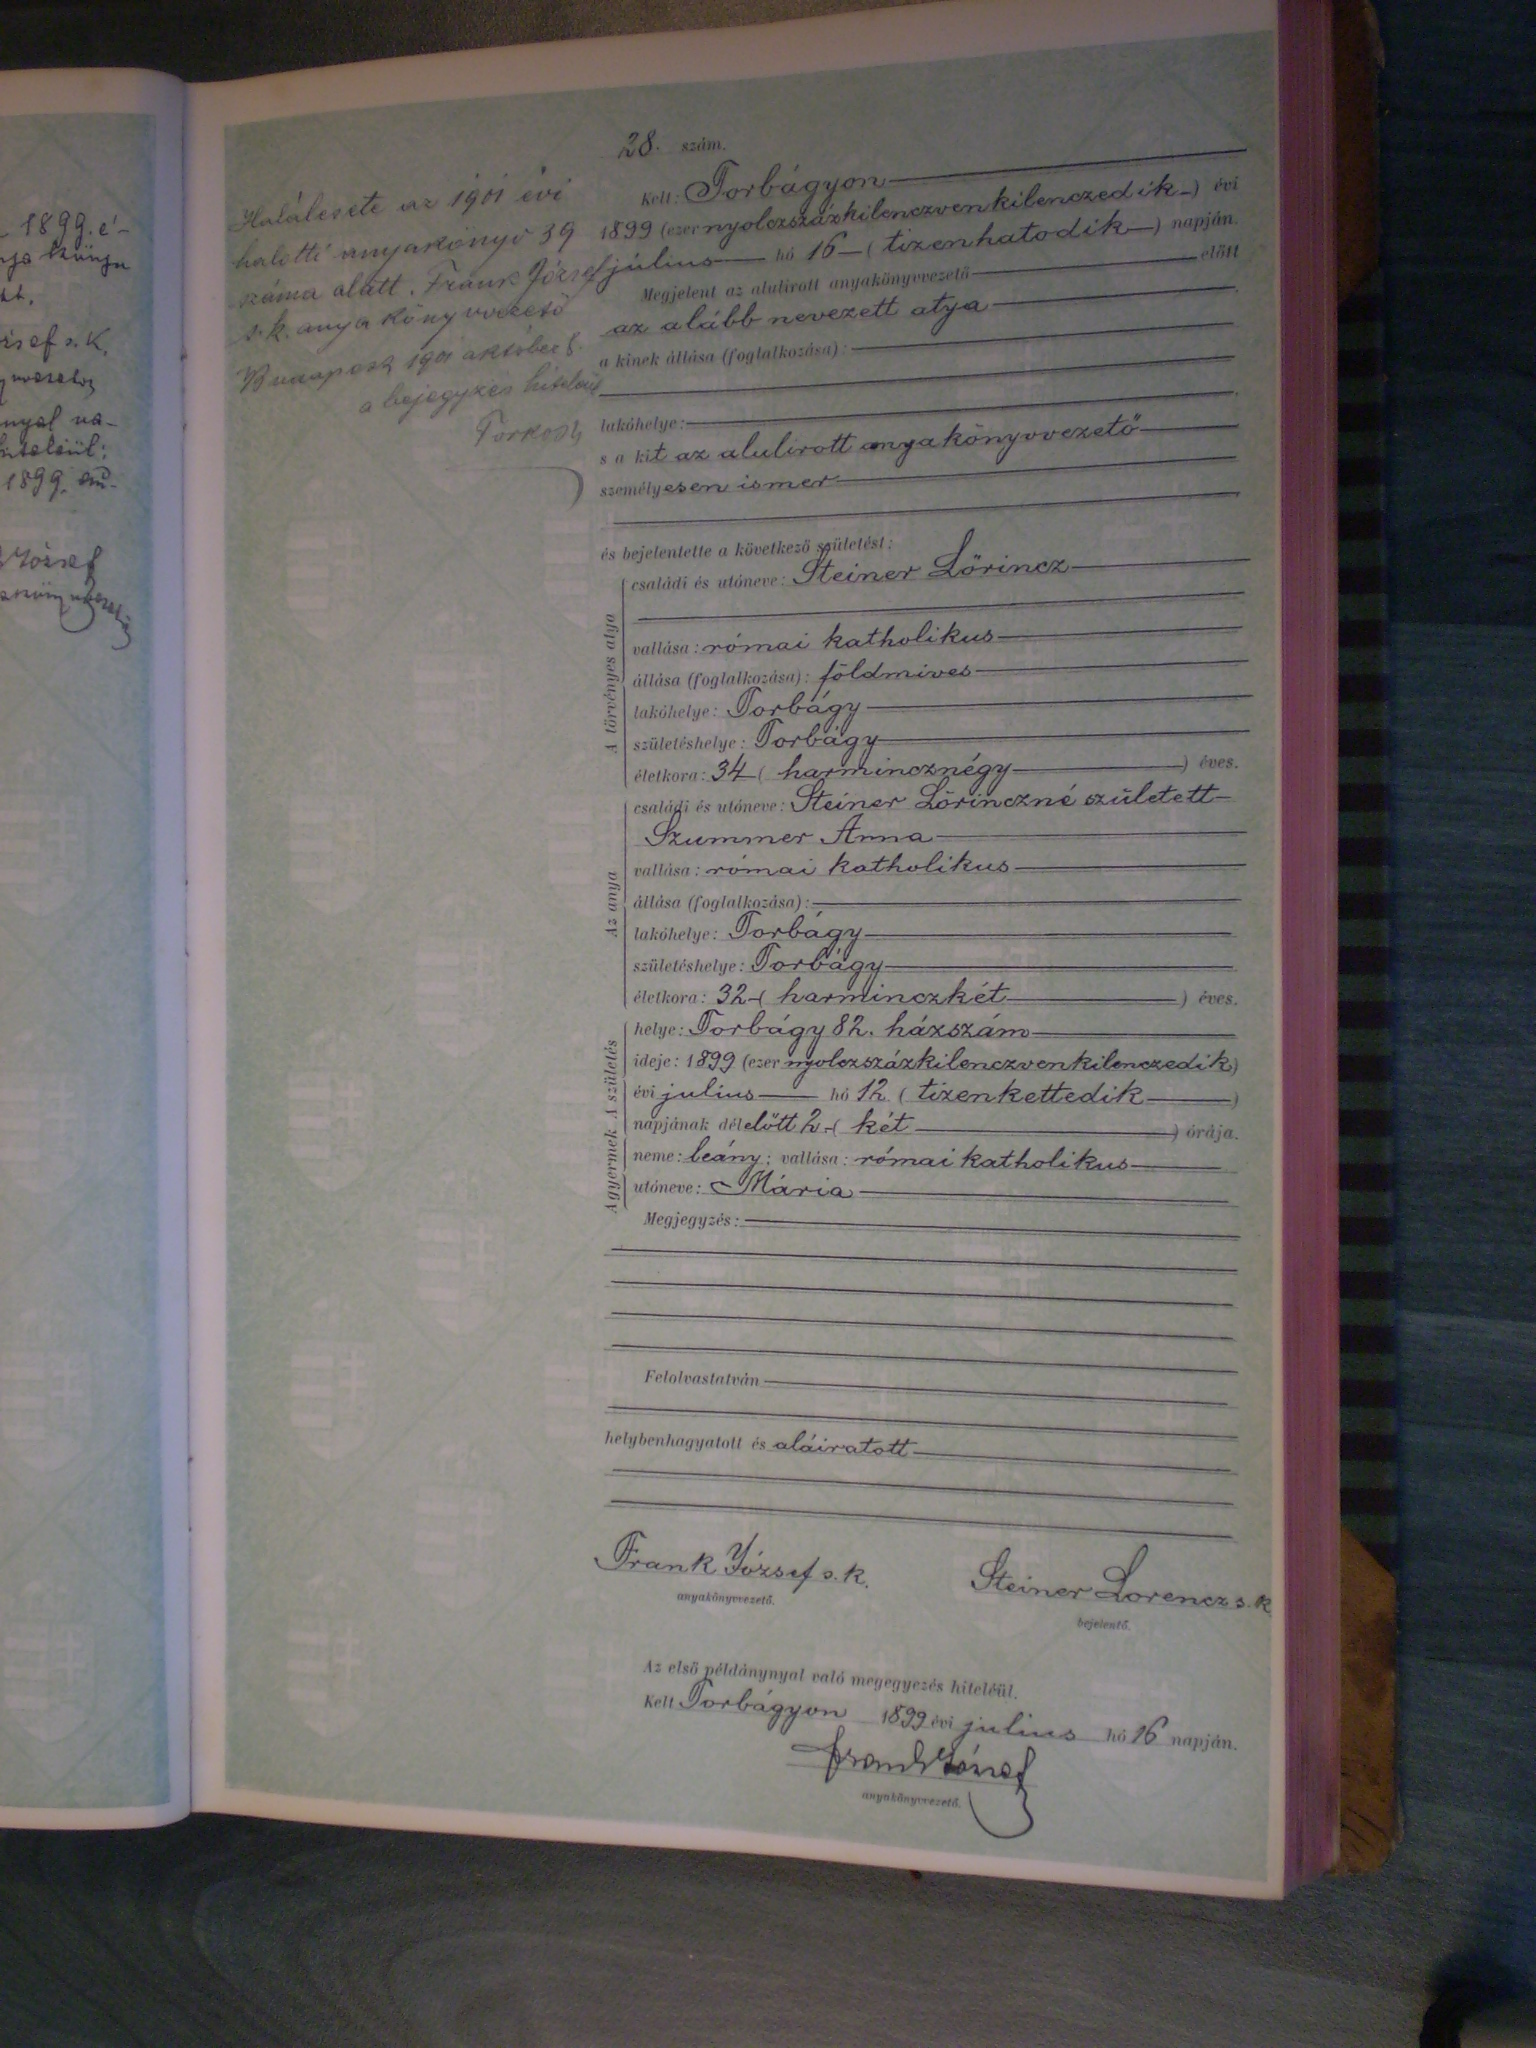 1899. é-
József s. k.
nyal va-
hiteléül:
1899.
József
Halálesete az 1901 évi
halotti anyakönyv 39
száma alatt. Frank József
s. k. anyakönyvvezető
Budapest 1901 október 8.
a bejegyzés hiteléül
28. szám.
Kelt: Torbágyon
1899 (ezer nyolczszázkilenczvenkilenczedik) évi
július hó 16 (tizenhatodik) napján.
Megjelent az alulirott anyakönyvvezető előtt
az alább nevezett atya
a kinek állása (foglalkozása):
lakóhelye:
s a kit az alulirott anyakönyvvezető
személyesen ismer
és bejelentette a következő születést:
A törvényes atya
családi és utóneve: Steiner Lőrincz
vallása: római katholikus
állása (foglalkozása): földmives
lakóhelye: Torbágy
születéshelye: Torbágy
életkora: 34 (harmincznégy) éves.
Az anya
családi és utóneve: Steiner Lőrinczné született
Szummer Anna
vallása: római katholikus
állása (foglalkozása):
lakóhelye: Torbágy
születéshelye: Torbágy
életkora: 32 (harminczkét) éves.
A születés
helye: Torbágy 82. házszám
ideje: 1899 (ezer nyolczszázkilenczvenkilenczedik)
évi julius hó 12. (tizenkettedik)
napjának délelőtt 2 (két) órája.
A gyermek
neme: leány; vallása: római katholikus
utóneve: Mária
Megjegyzés:
Felolvastatván
helybenhagyatott és aláiratott
Frank József s. k. Steiner Lorencz s. k.
anyakönyvvezető. bejelentő.
Az első példánynyal való megegyezés hiteléül.
Kelt Torbágyon 1899 évi julius hó 16 napján.
Frank József
anyakönyvvezető.